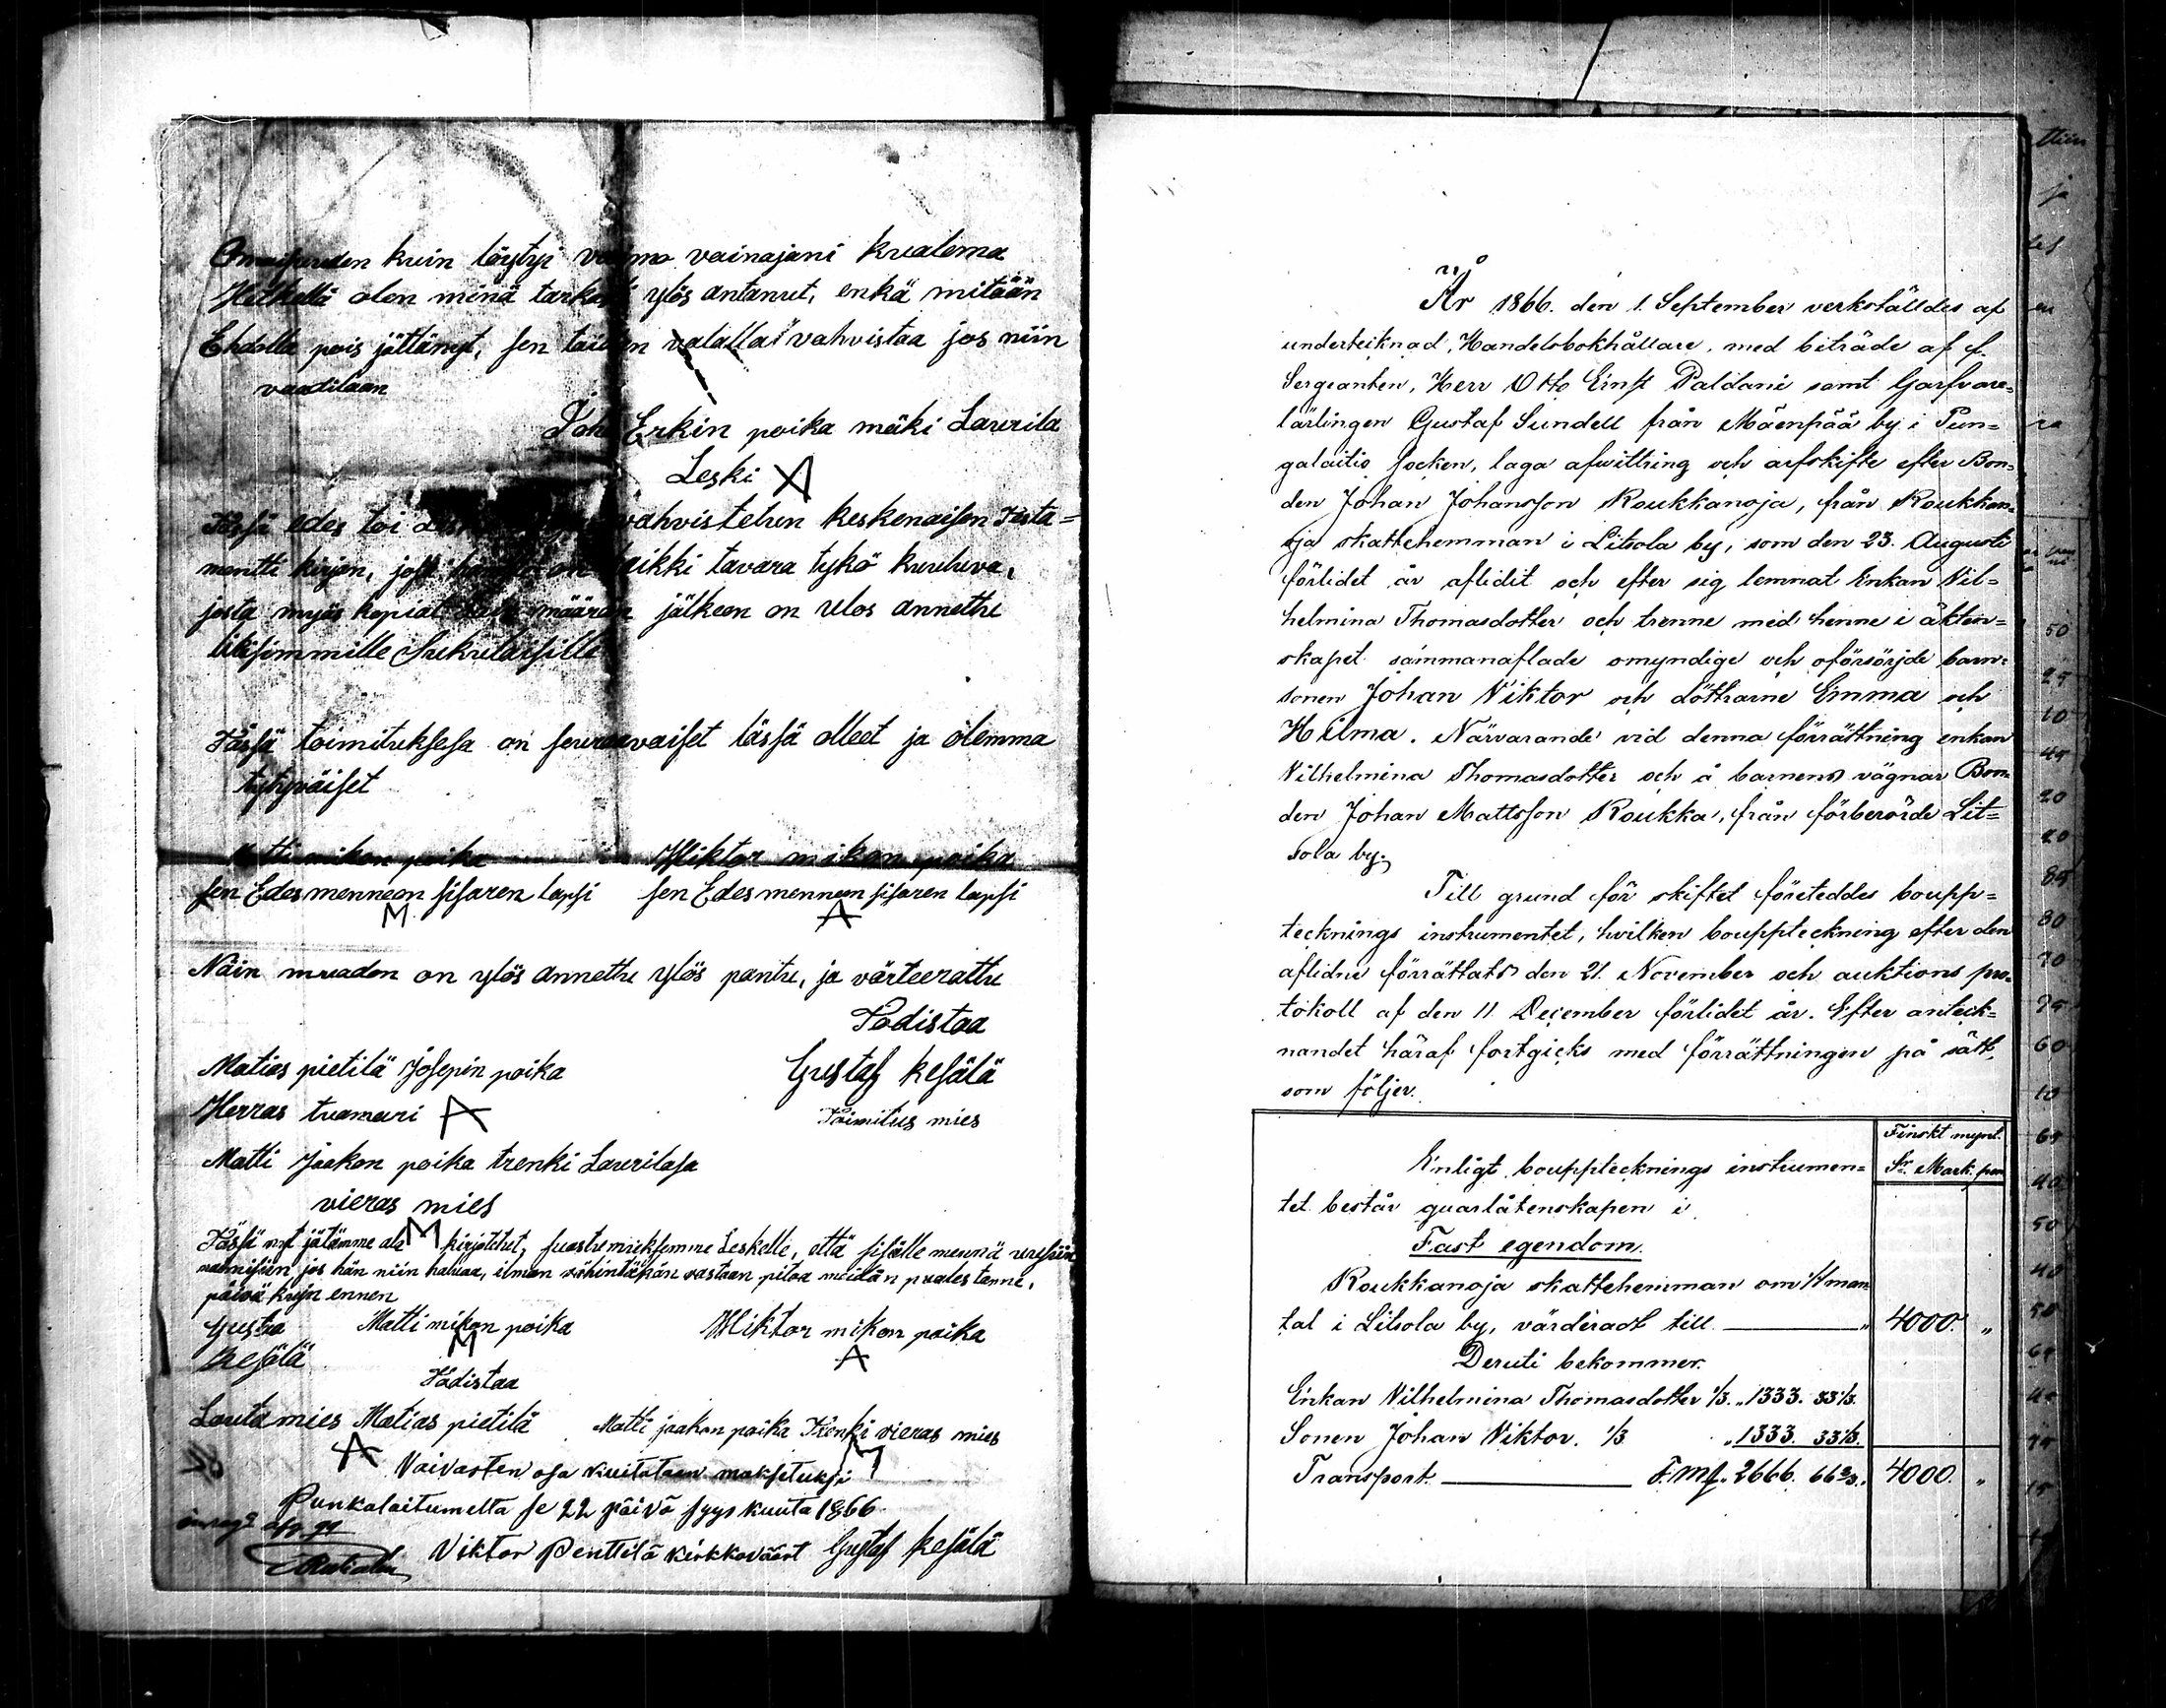 kuin löytyi vaimo vainajani kualema
Hetkellä olen minä tarkasti ylös antanut, enkä mitään
Ehdolla pois jättänyt, sen taidan valalla vahvistaa jos niin
vaaditaan
Erkin poika mäki Laurila
Leski
edes toi vahvistetun keskenäisen Testa=
mentti kirjan, kaikki tavara tykö kuuluva,
josta myös kopiat määrän jälkeen on ulos annettu
likisimmille Sukulaisille
Tässä toimituksesa on seuraavaiset tässä olleet ja olemma
tytyväiset
Matti mikon poika Wiktor mikon poika
sen Edesmenneen sisaren lapsi sen Edesmenneen sisaren lapsi
M A
Näin muaden on ylös annettu ylös pantu, ja värteerattu
Todistaa
Matias pietilä Josepin poika Gustaf Kesälä
Herras tuamari A Toimitus mies
Matti Jaakon poika trenki Laurilasa
vieras mies
Tässä nyt jätämme ala kirjotetut, suastumuksemme Leskelle, että sisälle mennä uuesiin
naimisiin jos hän niin haluaa, ilman vähintäkän vastaan pitoa meidän puolestanne,
päivä kuin ennen
Gusta Matti mikon poika Wiktor mikon poika
Kesälä M A
Todistaa
Lautamies Matias pietilä Matti jaakon poika Trenki vieras mies
A M
Vaivasten osa kuitataan maksetuksi
Punkalaitumelta se 22 päivä syyskuuta 1866
Viktor Penttilä kirkkoväärt Gustaf Kesälä
År 1866. den 1. September verkstälddes af
underteiknad, Handelsbokhållare, med biträde af f.
Sergeanten, Herr Otto Ernst Paldani samt Garfvare=
lärlingen Gustaf Sundell från Mäenpää by i Pun=
galaitio Socken, laga afwittring och arfskifte efter Bon=
den Johan Johansson Roukkanoja, från Roukkan=
oja skattehemman i Liitsola by, som den 23. Augusti
förlidet år aflidit och efter sig lemnat Enkan Vil=
helmina Thomasdotter och trenne med henne i äkten=
skapet sammanaflade omyndige och oförsörjde barn:
sonen Johan Viktor och döttrarne Emma och
Hilma. Närvarande vid denna förrättning enkan
Vilhelmina Thomasdotter och å barnens vägnar Bon=
den Johan Mattsson Roukka, från förberörde Liit=
sola by.
Till grund för skiftet företeddes boupp=
tecknings instrumentet, hvilken bouppteckning efter den
aflidne förrättats den 21. November och auktions pro=
tokoll af den 11 December förlidet år. Efter anteck=
nandet häraf fortgicks med förrättningen på sätt,
som följer.
Finskt mynt.
Enligt bouppteknings instrumen= Sr. Mark. pen
tet består quarlåtenskapen i
Fast egendom.
Roukkanoja skattehemman om 1/4 man=
tal i Liitsola by, värderadt till „ 4000. „
Deruti bekommer.
Enkan Vilhelmina Thomasdotter 1/3. „ 1333. 33 1/3.
Sonen Johan Viktor. 1/3 „ 1333. 33 1/3.
Transport F.mf. 2666. 66 2/3. 4000. „